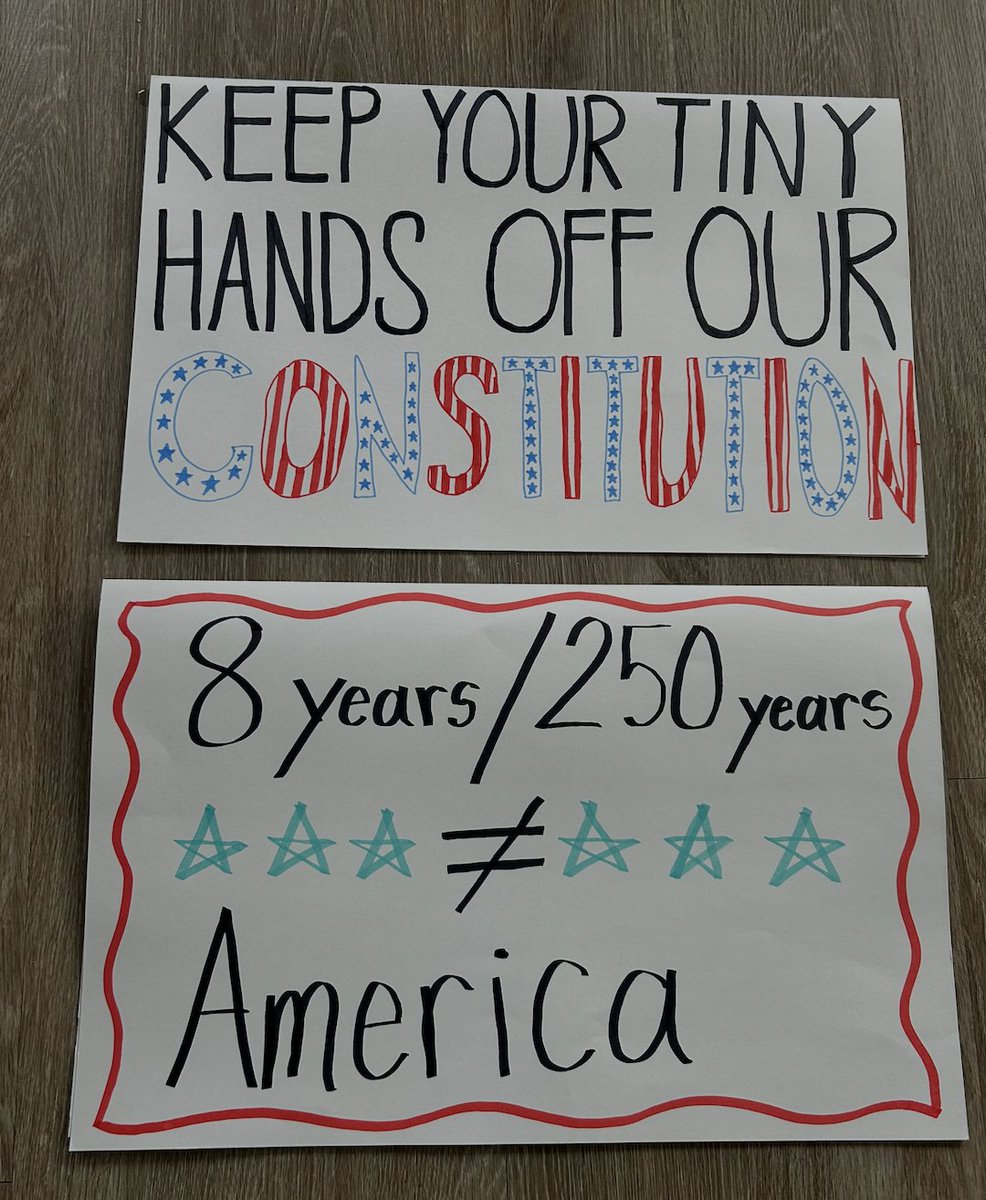 KEEP YOUR TINY
HANDS OFF OUR
CONSTITUTION
8 years/250 years
≠
America